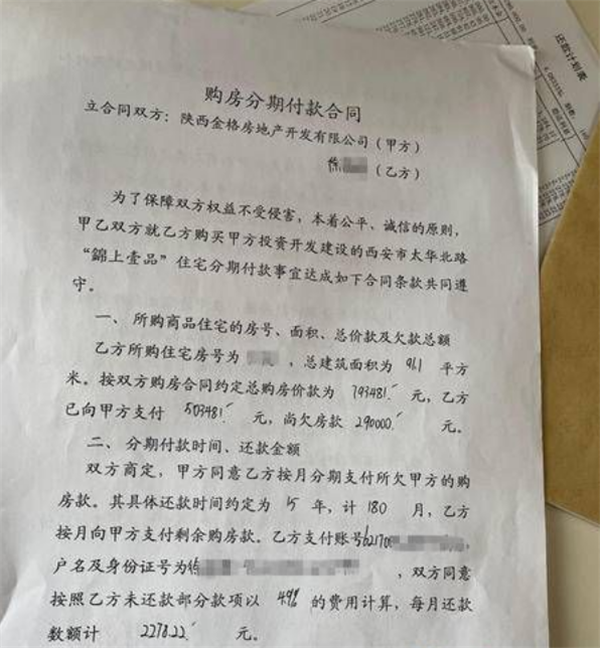 还款计划表
购房分期付款合同
立合同双方：陕西金格房地产开发有限公司（甲方）
徐（乙方）
为了保障双方权益不受侵害，本着公平、诚信的原则，
甲乙双方就乙方购买甲方投资开发建设的西安市太华北路
“錦上壹品”住宅分期付款事宜达成如下合同条款共同遵
守。
一、所购商品住宅的房号、面积、总价款及欠款总额
乙方所购住宅房号为 ，总建筑面积为 91.1 平方
米。按双方购房合同约定总购房价款为 793481. 元，乙方
已向甲方支付 503481. 元，尚欠房款 290000. 元。
二、分期付款时间、还款金额
双方商定，甲方同意乙方按月分期支付所欠甲方的购
房款。其具体还款时间约定为 15 年，计 180 月，乙方
按月向甲方支付剩余购房款。乙方支付账号 621700
户名及身份证号为徐 ，双方同意
按照乙方未还款部分款项以 4.9% 的费用计算，每月还款
数额计 2278.22. 元。